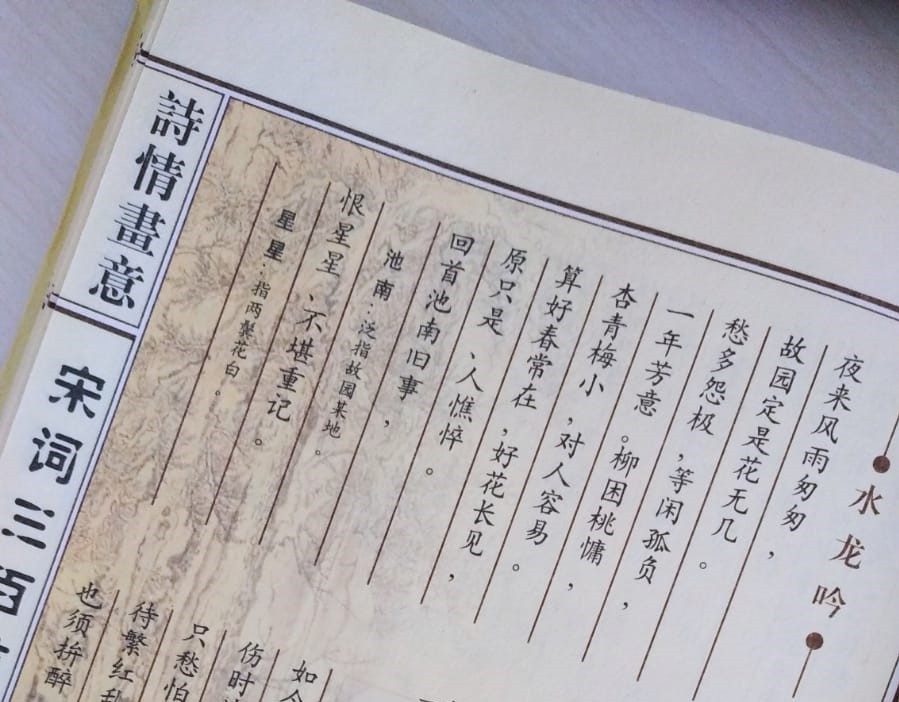 水龙吟
夜来风雨匆匆，
故园定是花无几。
愁多怨极，等闲孤负，
一年芳意。柳困桃慵，
杏青梅小，对人容易。
算好春常在，好花长见，
原只是、人憔悴。
回首池南旧事，
池南：泛指故园某地。
恨星星、不堪重记。
星星：指两鬓花白。
如今
伤时
只愁怕
待繁红乱
也须拚醉
詩情畫意
宋词三百